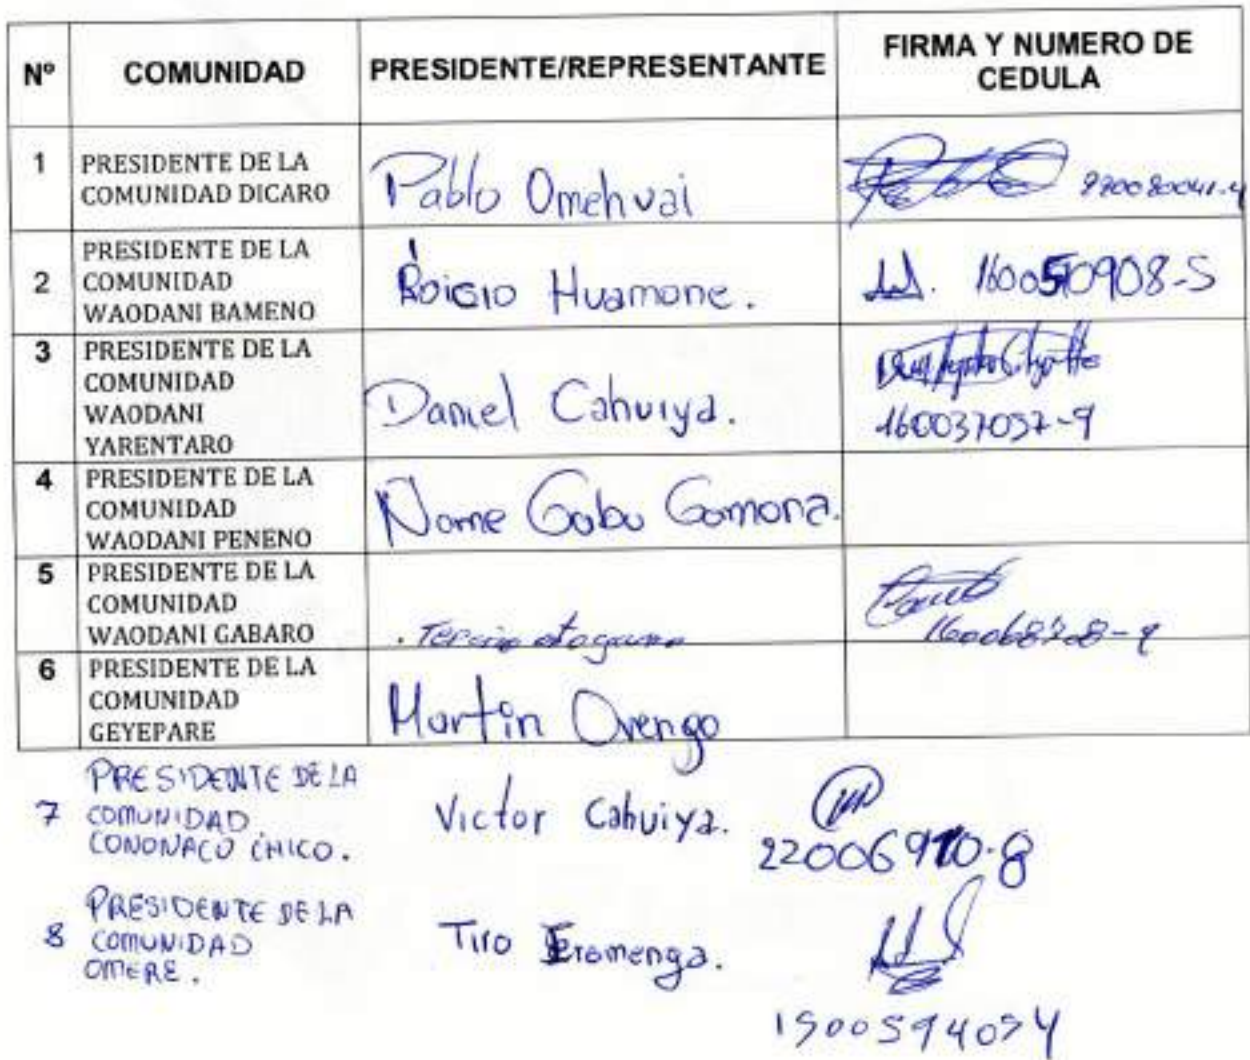 Nº COMUNIDAD PRESIDENTE/REPRESENTANTE FIRMA Y NUMERO DE
CEDULA
1 PRESIDENTE DE LA
COMUNIDAD DICARO
Pablo Omehuai
PRESIDENTE DE LA
2 COMUNIDAD
WAODANI BAMENO
Huamone. 160050908-5
3 PRESIDENTE DE LA
COMUNIDAD
WAODANI
YARENTARO
Daniel Cahuiya.
160037057-9
4 PRESIDENTE DE LA
COMUNIDAD
WAODANI PENENO
Name Gaba Gamona.
5 PRESIDENTE DE LA
COMUNIDAD
WAODANI GABARO
6 PRESIDENTE DE LA
COMUNIDAD
GEYEPARE
Martin Ovengo
PRESIDENTE DE LA
7 COMUNIDAD
CONONACO CHICO.
Victor Cahuiya.
PRESIDENTE DE LA
8 COMUNIDAD
OMERE.
Tiro